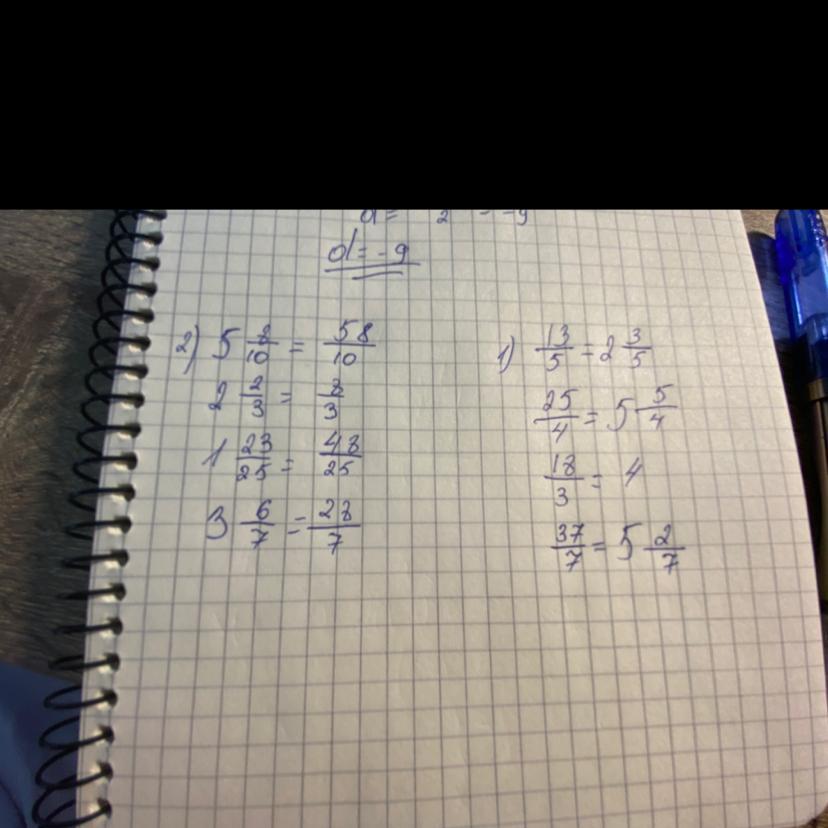 d = -9
2) 5 8/10 = 58/10
2 2/3 = 8/3
1 23/25 = 48/25
3 6/7 = 27/7
1) 13/5 = 2 3/5
25/4 = 5 5/4
18/3 = 4
37/7 = 5 2/7